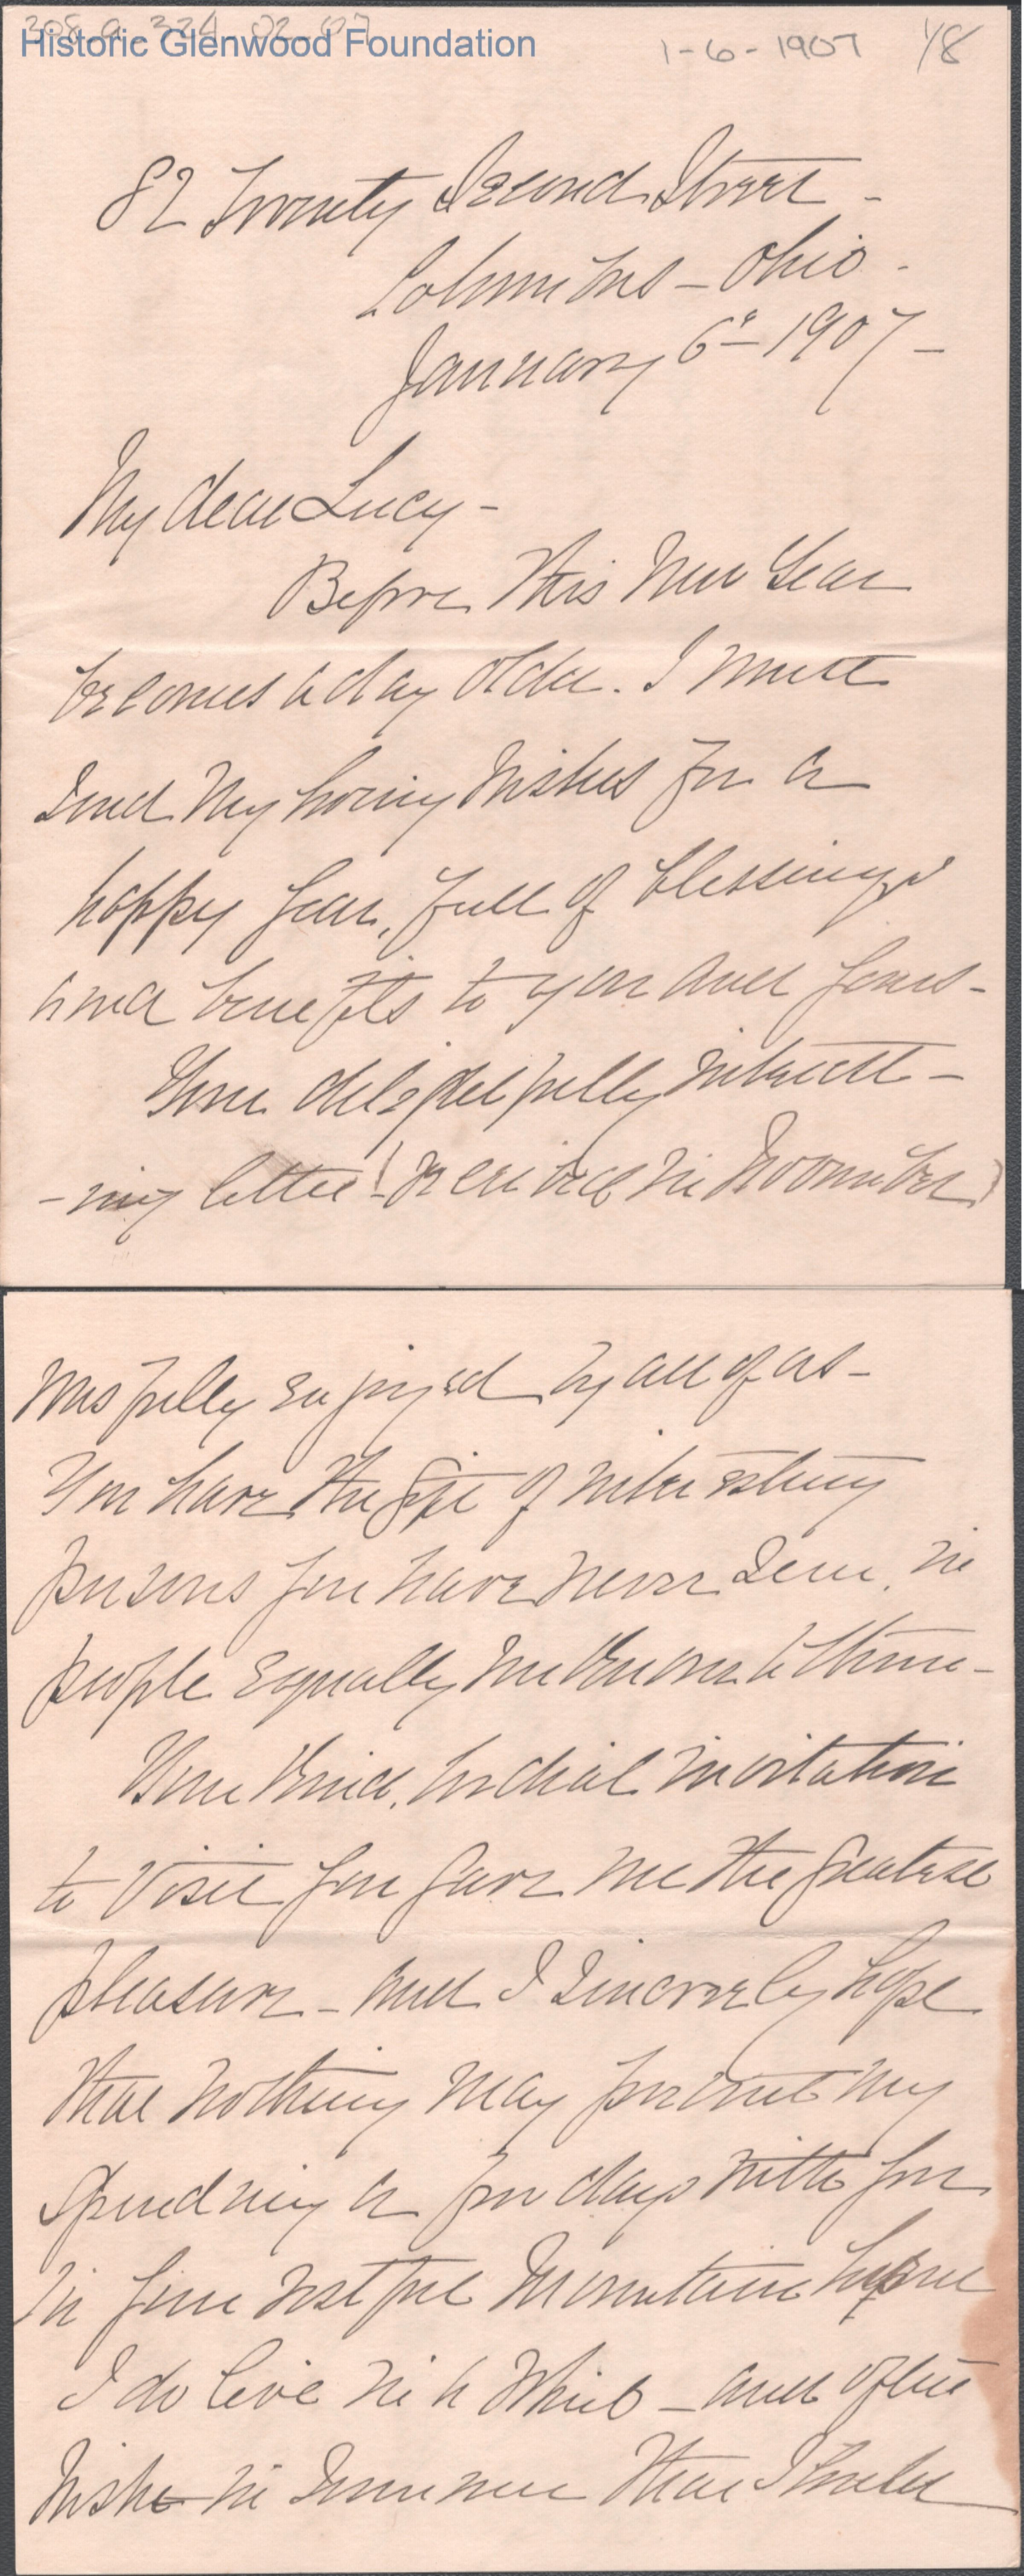 308.a.334.02.07
Historic Glenwood Foundation
1-6-1907
1/8
82 Twenty Second Street -
Columbus - Ohio -
January 6th - 1907 -
My dear Lucy -
Before this New Year
becomes a day older. I must
send my loving wishes for a
happy year, full of blessings
and benefits to you and yours -
Your delightfully interest -
- ing letter (received in November)
was fully enjoyed by all of us -
You have the gift of interesting
persons you have never seen, in
people equally unknown to them -
Your kind, cordial invitation
to visit you gave me the greatest
pleasure - and I sincerely hope
that nothing may prevent my
spending a few days with you
in your restful Mountain home
I do live in a whirl - and often
wish in Summer that I could